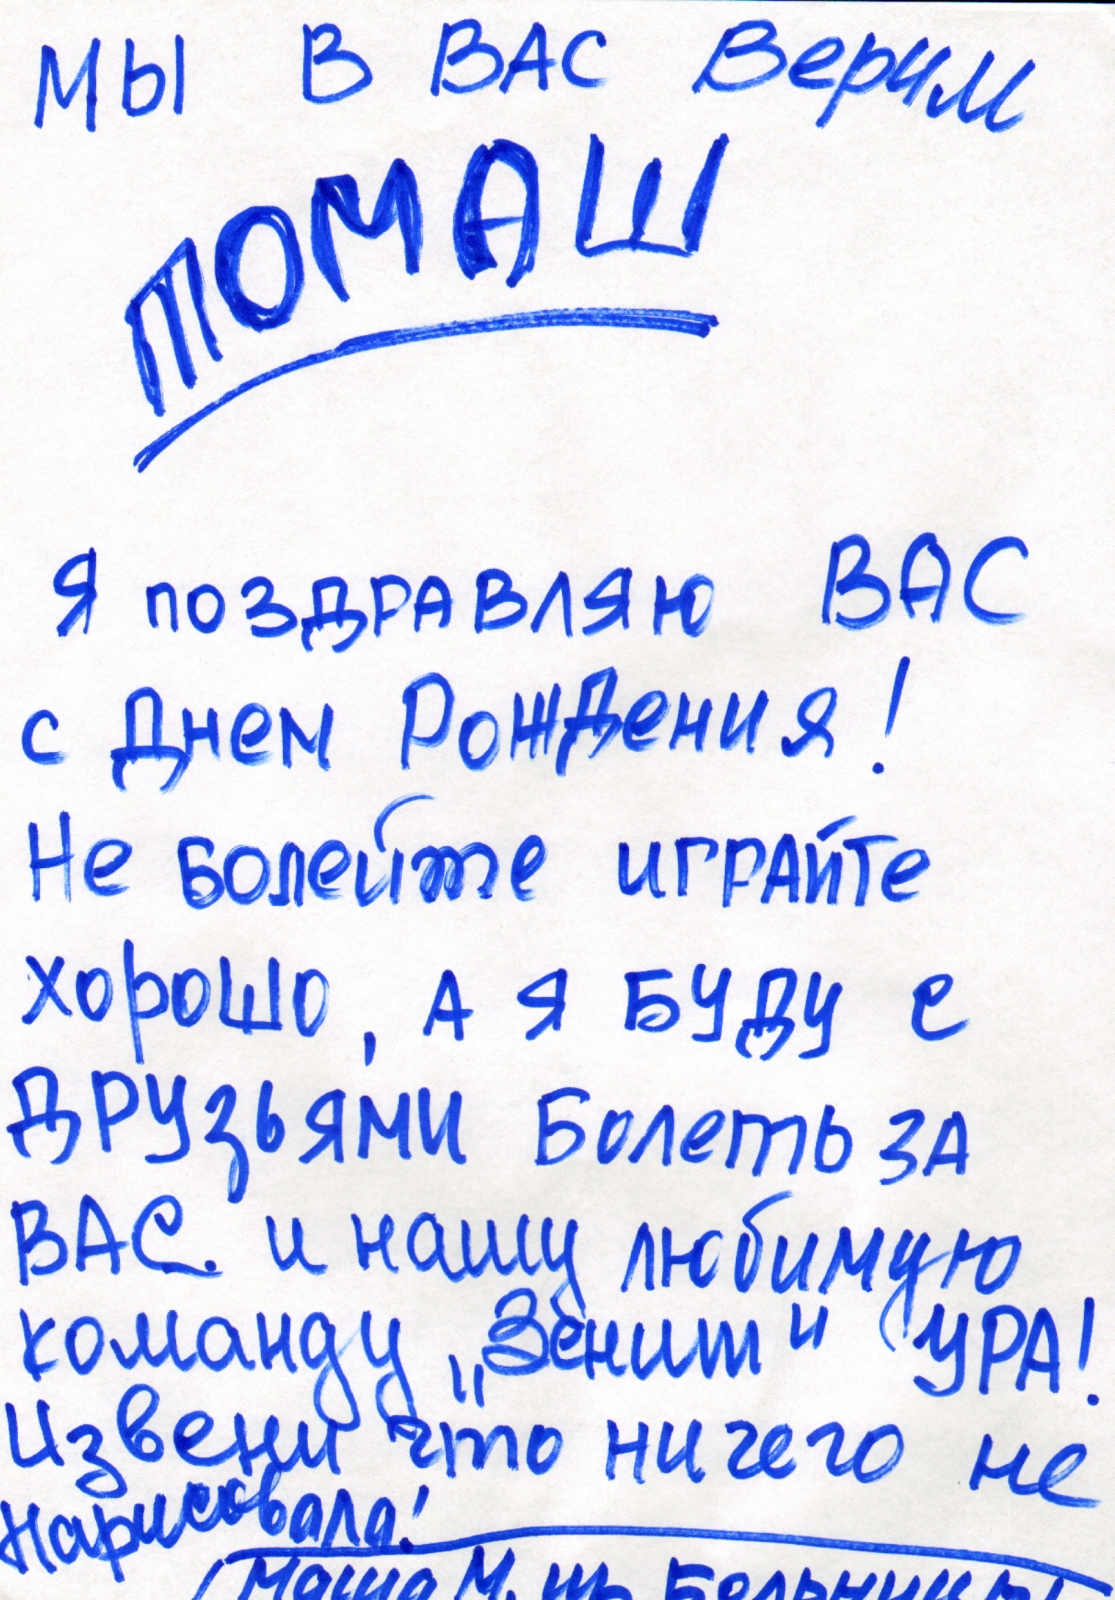 МЫ В ВАС Верим
ТОМАШ
Я ПОЗДРАВЛЯЮ ВАС
с Днем Рождения!
Не Болейте играйте
хорошо, А Я БУДУ с
ДРУЗЬЯМИ Болеть ЗА
ВАС. и нашу любимую
команду „Зенит" УРА!
Извени что ничего не
Нарисовала!
Маша М.